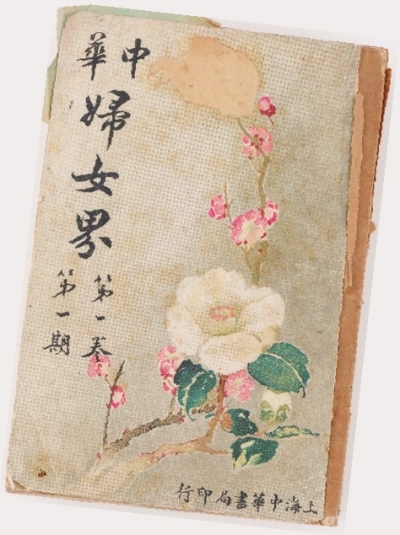 中華
婦女界
第一卷
第一期
上海中華書局印行